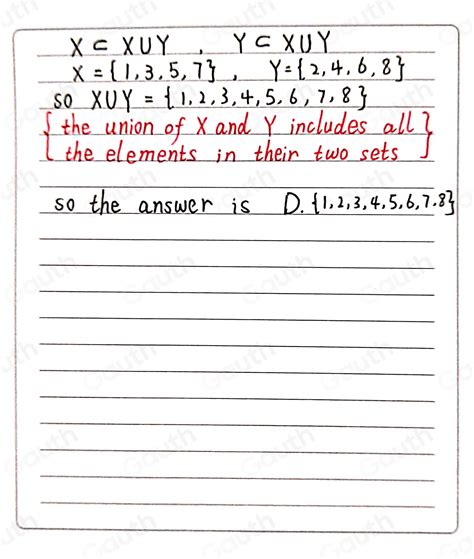 X ⊂ X∪Y , Y ⊂ X∪Y
X = {1,3,5,7} , Y={2,4,6,8}
so X∪Y = {1,2,3,4,5,6,7,8}
{the union of X and Y includes all
the elements in their two sets}
so the answer is D. {1,2,3,4,5,6,7.8}